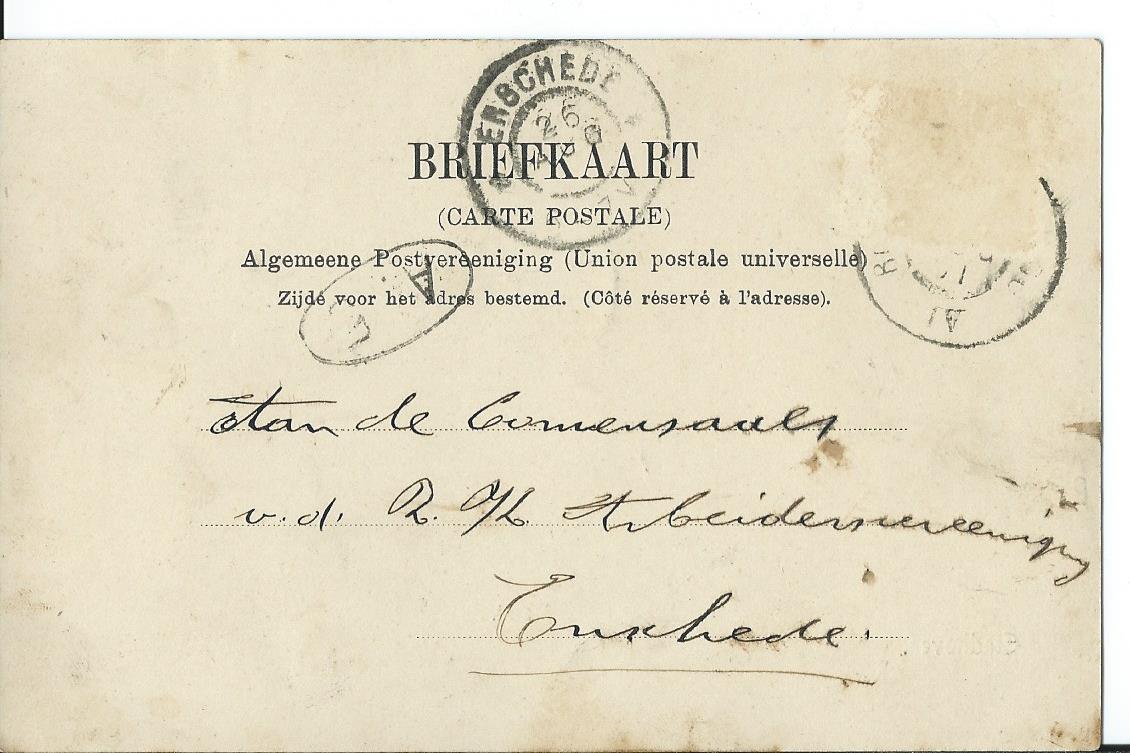 ENSCHEDE
26
BRIEFKAART
(CARTE POSTALE)
Algemeene Postvereeniging (Union postale universelle)
Zijde voor het adres bestemd. (Côté réservé à l'adresse).
A
Aan de Comensaals
v. d. R. K. Arbeidersvereeniging
Enschede.